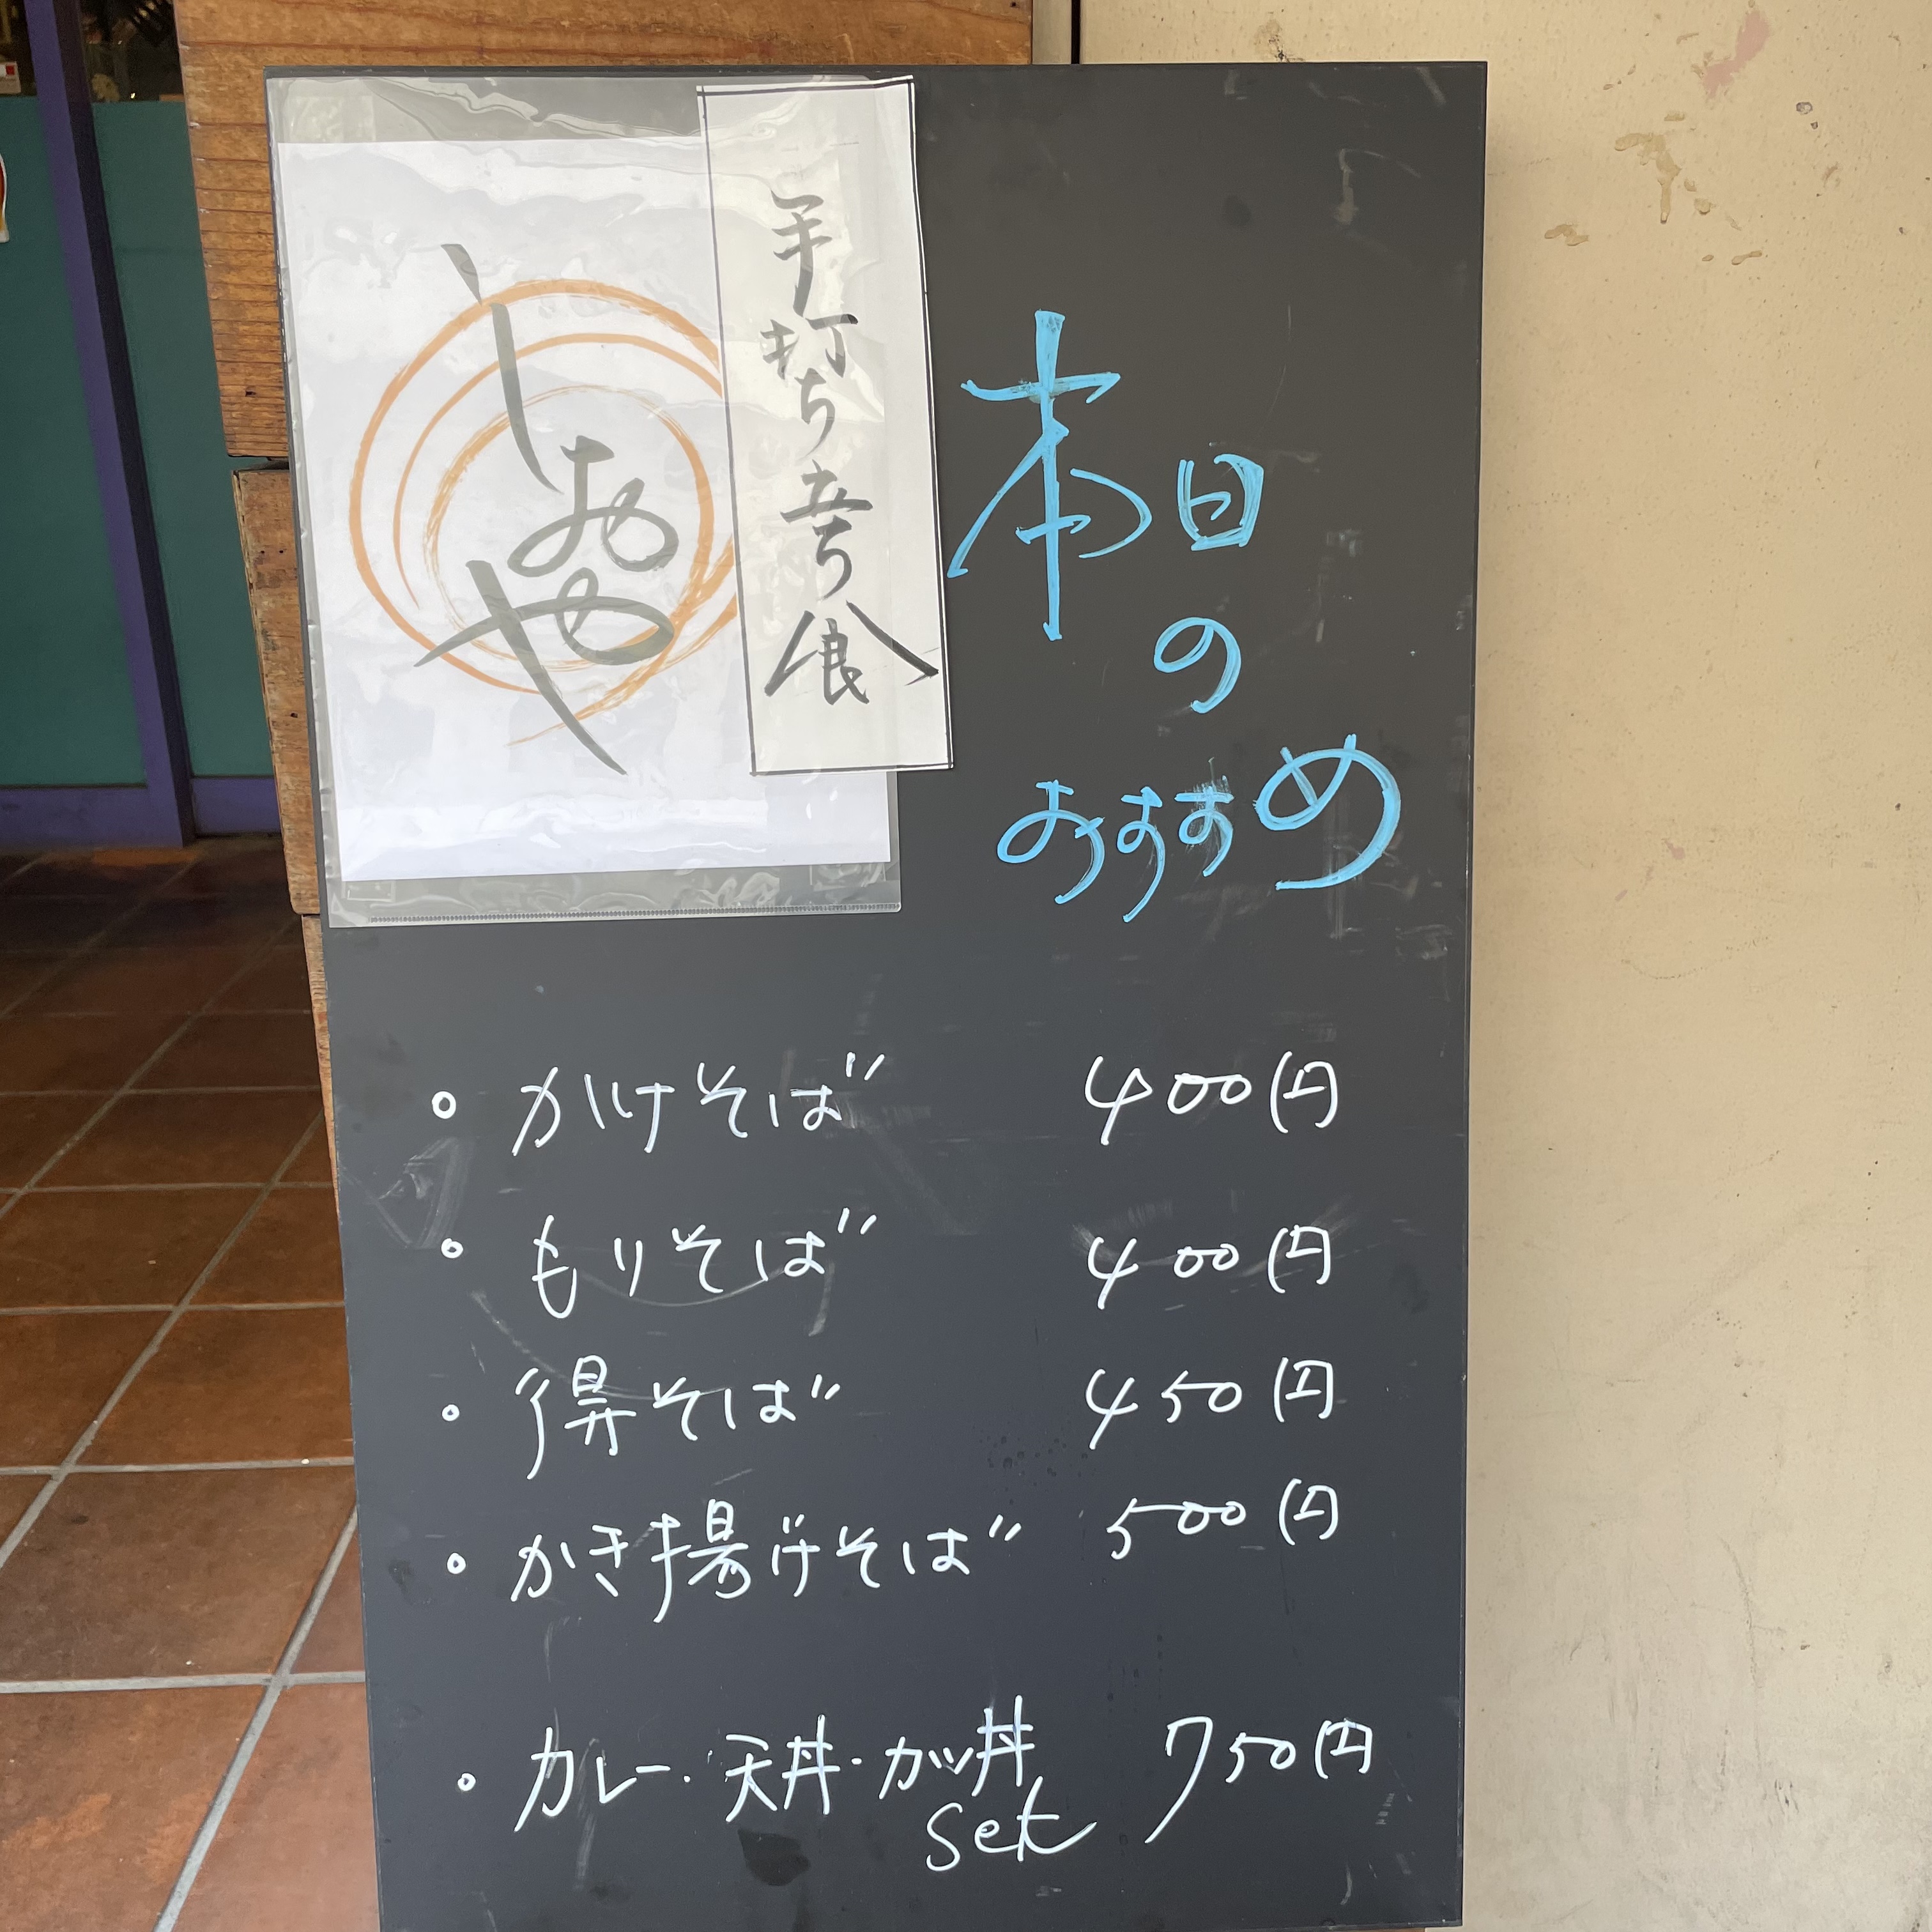 しおや
手打ち立ち食
本日
の
おすすめ
。かけそば 400円
。もりそば 400円
。得そば 450円
。かき揚げそば 500円
。カレー・天丼・カツ丼 750円
set